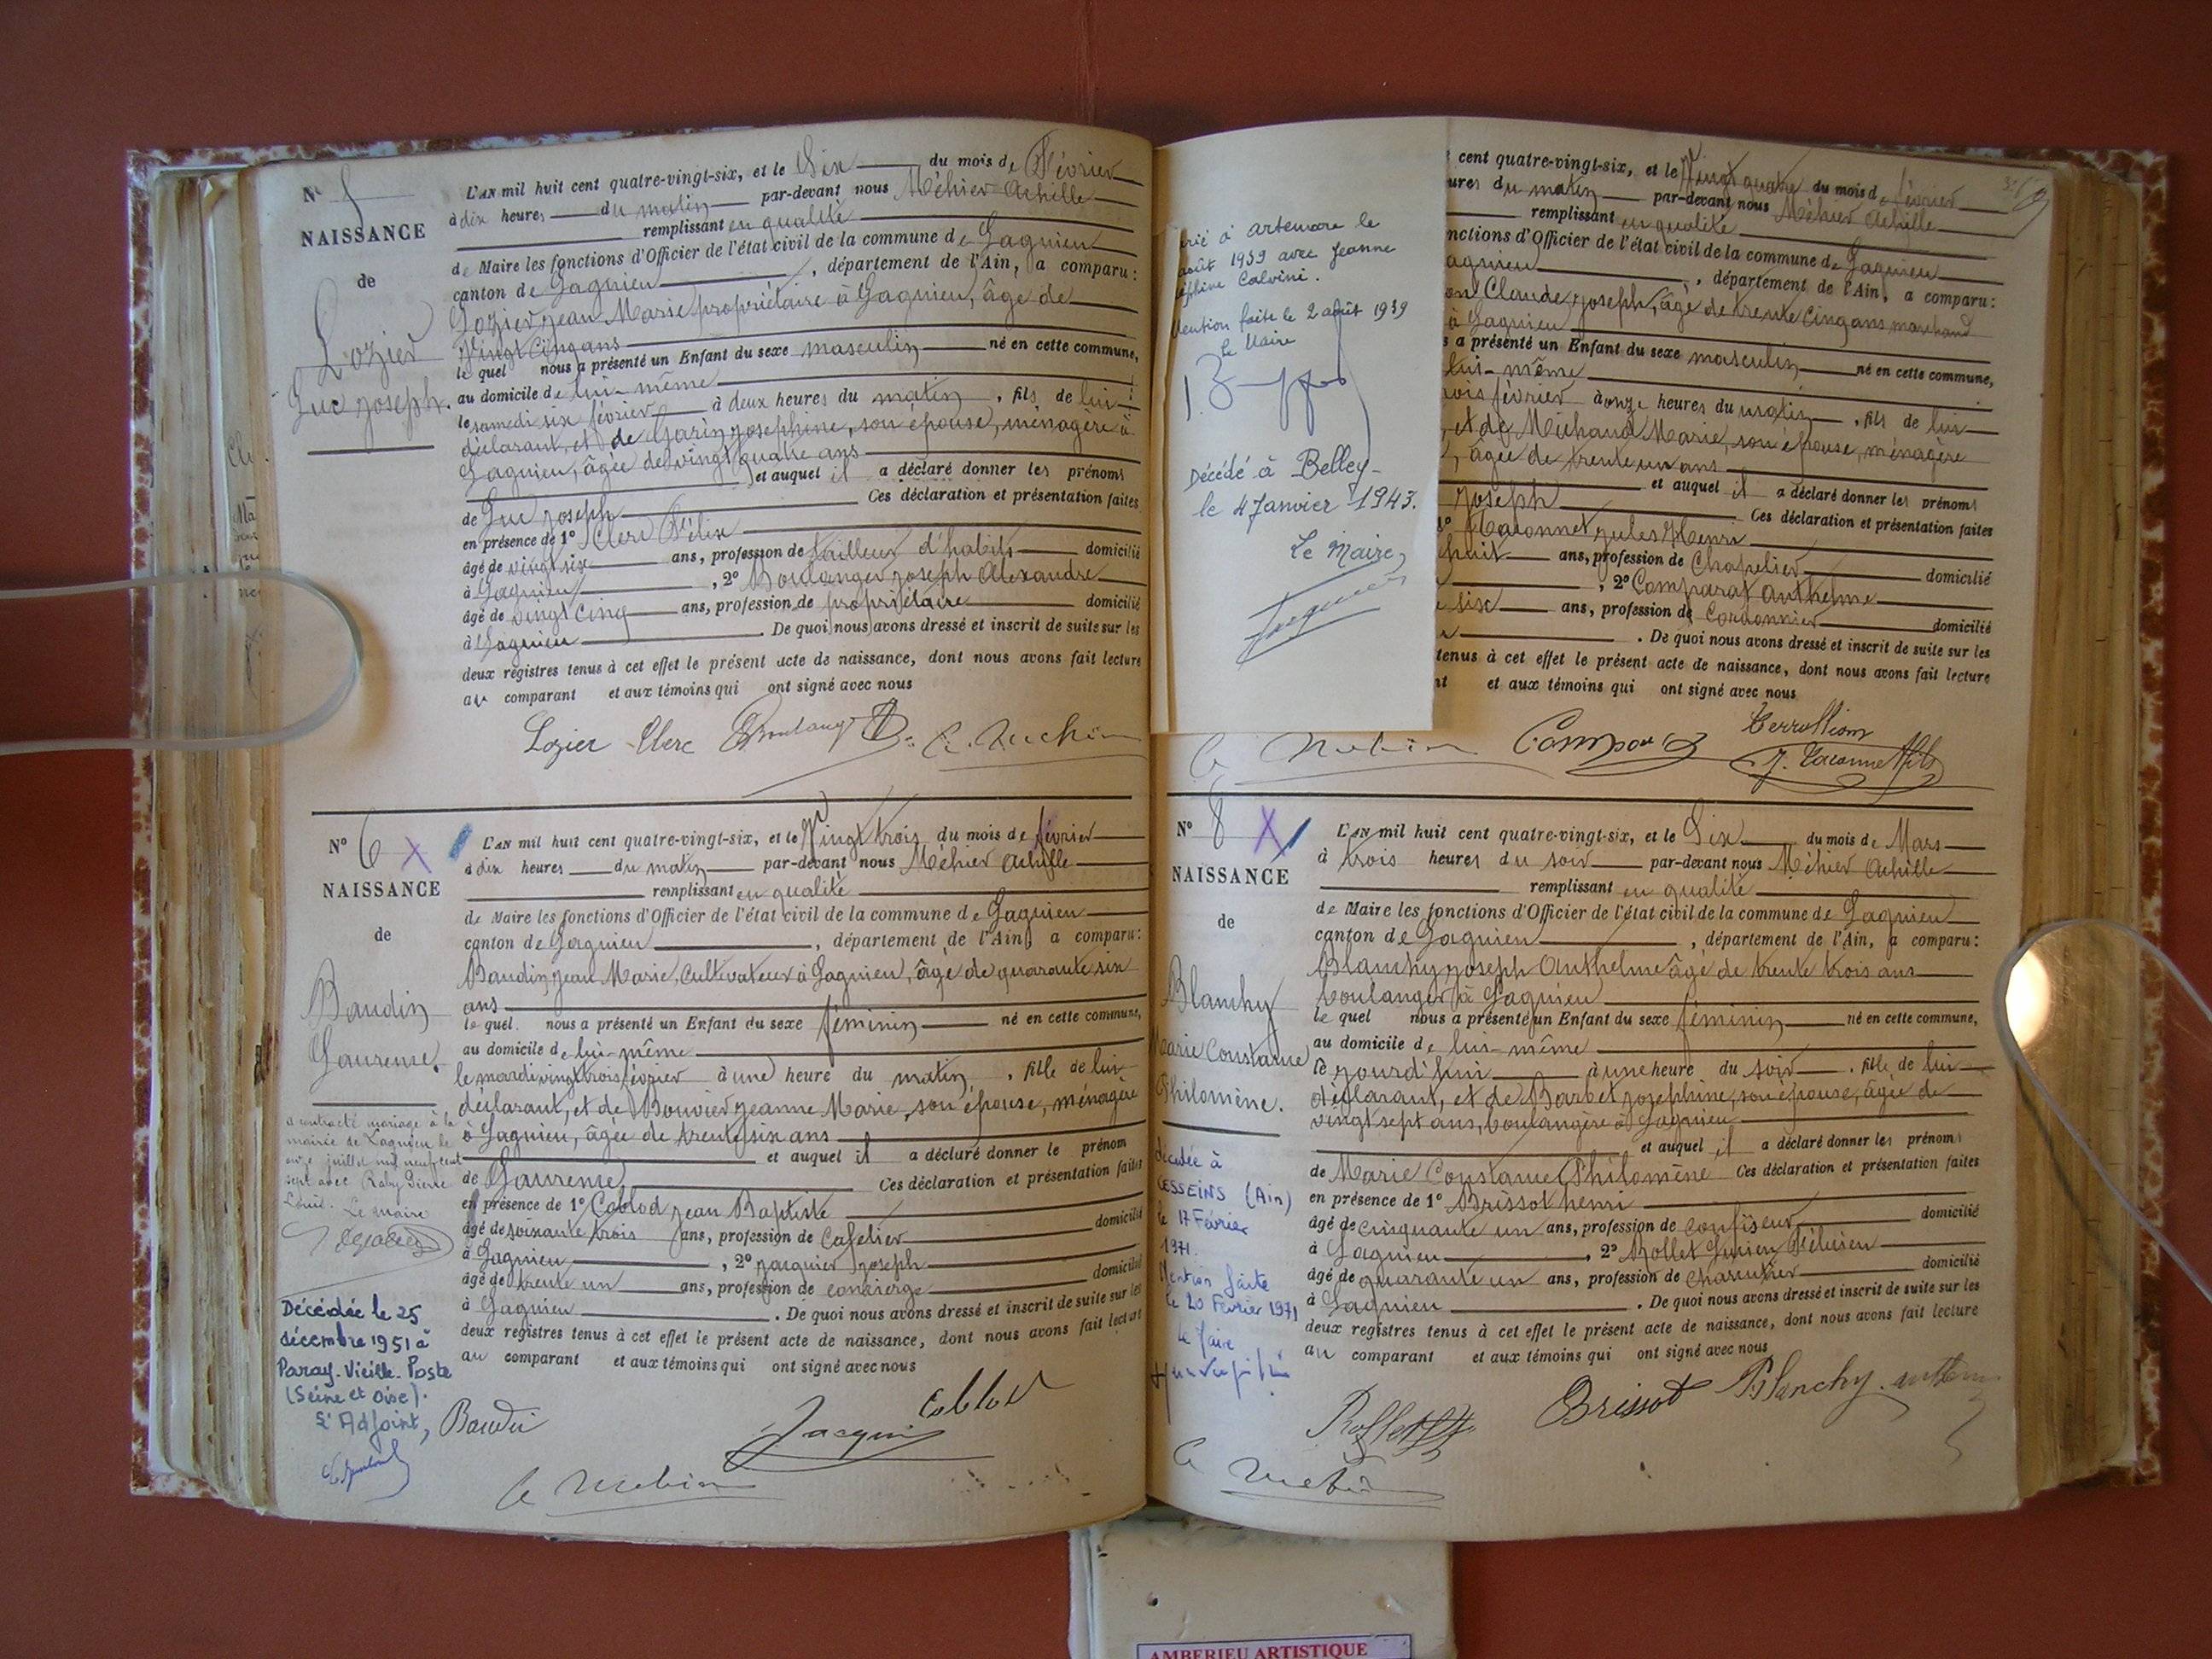 N° 5
NAISSANCE
de
Lozier
Luc Joseph.
L'AN mil huit cent quatre-vingt-six, et le Six du mois de Février
à dix heures du matin par-devant nous Méhier Achille
remplissant en qualité
de Maire les fonctions d'Officier de l'état civil de la commune de Lagnieu
canton de Lagnieu, département de l'Ain, a comparu:
Lozier Jean Marie propriétaire à Lagnieu, âgé de
vingt cinq ans
le quel nous a présenté un Enfant du sexe masculin né en cette commune,
au domicile de lui-même
le samedi six février à deux heures du matin, fils de lui
déclarant, et de Garin Josephine, son épouse, ménagère à
Lagnieu, âgée de vingt quatre ans
et auquel il a déclaré donner les prénoms
de Luc Joseph Ces déclaration et présentation faites
en présence de 1° Clerc Félix
âgé de vingt six ans, profession de tailleur d'habits domicilié
à Lagnieu, 2° Boulanger Joseph Alexandre
âgé de vingt cinq ans, profession de propriétaire domicilié
à Lagnieu. De quoi nous avons dressé et inscrit de suite sur les
deux registres tenus à cet effet le présent acte de naissance, dont nous avons fait lecture
au comparant et aux témoins qui ont signé avec nous
Lozier Clerc
N° 6 X
NAISSANCE
de
Baudin
Laurence.
a contracté mariage à la
mairie de Lagnieu le
onze juillet mil neuf cent
sept avec Raby Pierre
Louis. Le Maire
Décédée le 25
décembre 1951 à
Paray-Vieille-Poste
(Seine et Oise).
L'Adjoint,
L'AN mil huit cent quatre-vingt-six, et le Vingt trois du mois de février
à dix heures du matin par-devant nous Méhier Achille
remplissant en qualité
de Maire les fonctions d'Officier de l'état civil de la commune de Lagnieu
canton de Lagnieu, département de l'Ain, a comparu:
Baudin Jean Marie, Cultivateur à Lagnieu, âgé de quarante six
ans
le quel nous a présenté un Enfant du sexe féminin né en cette commune,
au domicile de lui-même
le mardi vingt trois février à une heure du matin, fille de lui
déclarant, et de Bouvier Jeanne Marie, son épouse, ménagère
à Lagnieu, âgée de trente six ans
et auquel il a déclaré donner le prénom
de Laurence Ces déclaration et présentation faites
en présence de 1° Coblod Jean Baptiste
âgé de soixante trois ans, profession de Cafetier domicilié
à Lagnieu, 2° Jarguier Joseph
âgé de trente un ans, profession de concierge domicilié
à Lagnieu. De quoi nous avons dressé et inscrit de suite sur les
deux registres tenus à cet effet le présent acte de naissance, dont nous avons fait lecture
au comparant et aux témoins qui ont signé avec nous
Baudin Coblod
à Artemare le
août 1939 avec Jeanne
Calvini.
Mention faite le 2 août 1939
Le Maire
Décédé à Belley
le 4 Janvier 1943.
Le Maire,
cent quatre-vingt-six, et le Vingt quatre du mois de février
du matin par-devant nous Méhier Achille
remplissant en qualité
fonctions d'Officier de l'état civil de la commune de Lagnieu
agnieu, département de l'Ain, a comparu:
Claude Joseph, âgé de trente cinq ans marchand
à Lagnieu
a présenté un Enfant du sexe masculin né en cette commune,
lui-même
février à onze heures du matin, fils de lui
et de Michaud Marie, son épouse, ménagère
, âgée de trente un ans
et auquel il a déclaré donner les prénoms
Joseph Ces déclaration et présentation faites
Taconnet Jules Henri
huit ans, profession de Chapelier domicilié
, 2° Comparat Anthelme
six ans, profession de Cordonnier domicilié
. De quoi nous avons dressé et inscrit de suite sur les
tenus à cet effet le présent acte de naissance, dont nous avons fait lecture
et aux témoins qui ont signé avec nous
Terrollion
J. Taconnet fils
N° 8 X
NAISSANCE
de
Blanchy
Marie Constance
Philomène.
décédée à
CESSEINS (Ain)
le 17 Février
1971.
Mention faite
le 20 Février 1971
le Maire
L'AN mil huit cent quatre-vingt-six, et le Six du mois de Mars
à trois heures du soir par-devant nous Méhier Achille
remplissant en qualité
de Maire les fonctions d'Officier de l'état civil de la commune de Lagnieu
canton de Lagnieu, département de l'Ain, a comparu:
Blanchy Joseph Anthelme âgé de trente trois ans
boulanger à Lagnieu
le quel nous a présenté un Enfant du sexe féminin né en cette commune,
au domicile de lui-même
le jourd'hui à une heure du soir, fille de lui
déclarant, et de Barbet Josephine, son épouse, âgée de
vingt sept ans, boulangère à Lagnieu
et auquel il a déclaré donner les prénoms
de Marie Constance Philomène Ces déclaration et présentation faites
en présence de 1° Brissot henri
âgé de cinquante un ans, profession de confiseur domicilié
à Lagnieu, 2° Rollet Lucien Félicien
âgé de quarante un ans, profession de Charcutier domicilié
à Lagnieu. De quoi nous avons dressé et inscrit de suite sur les
deux registres tenus à cet effet le présent acte de naissance, dont nous avons fait lecture
au comparant et aux témoins qui ont signé avec nous
Rollet Brissot Blanchy
AMBERIEU ARTISTIQUE